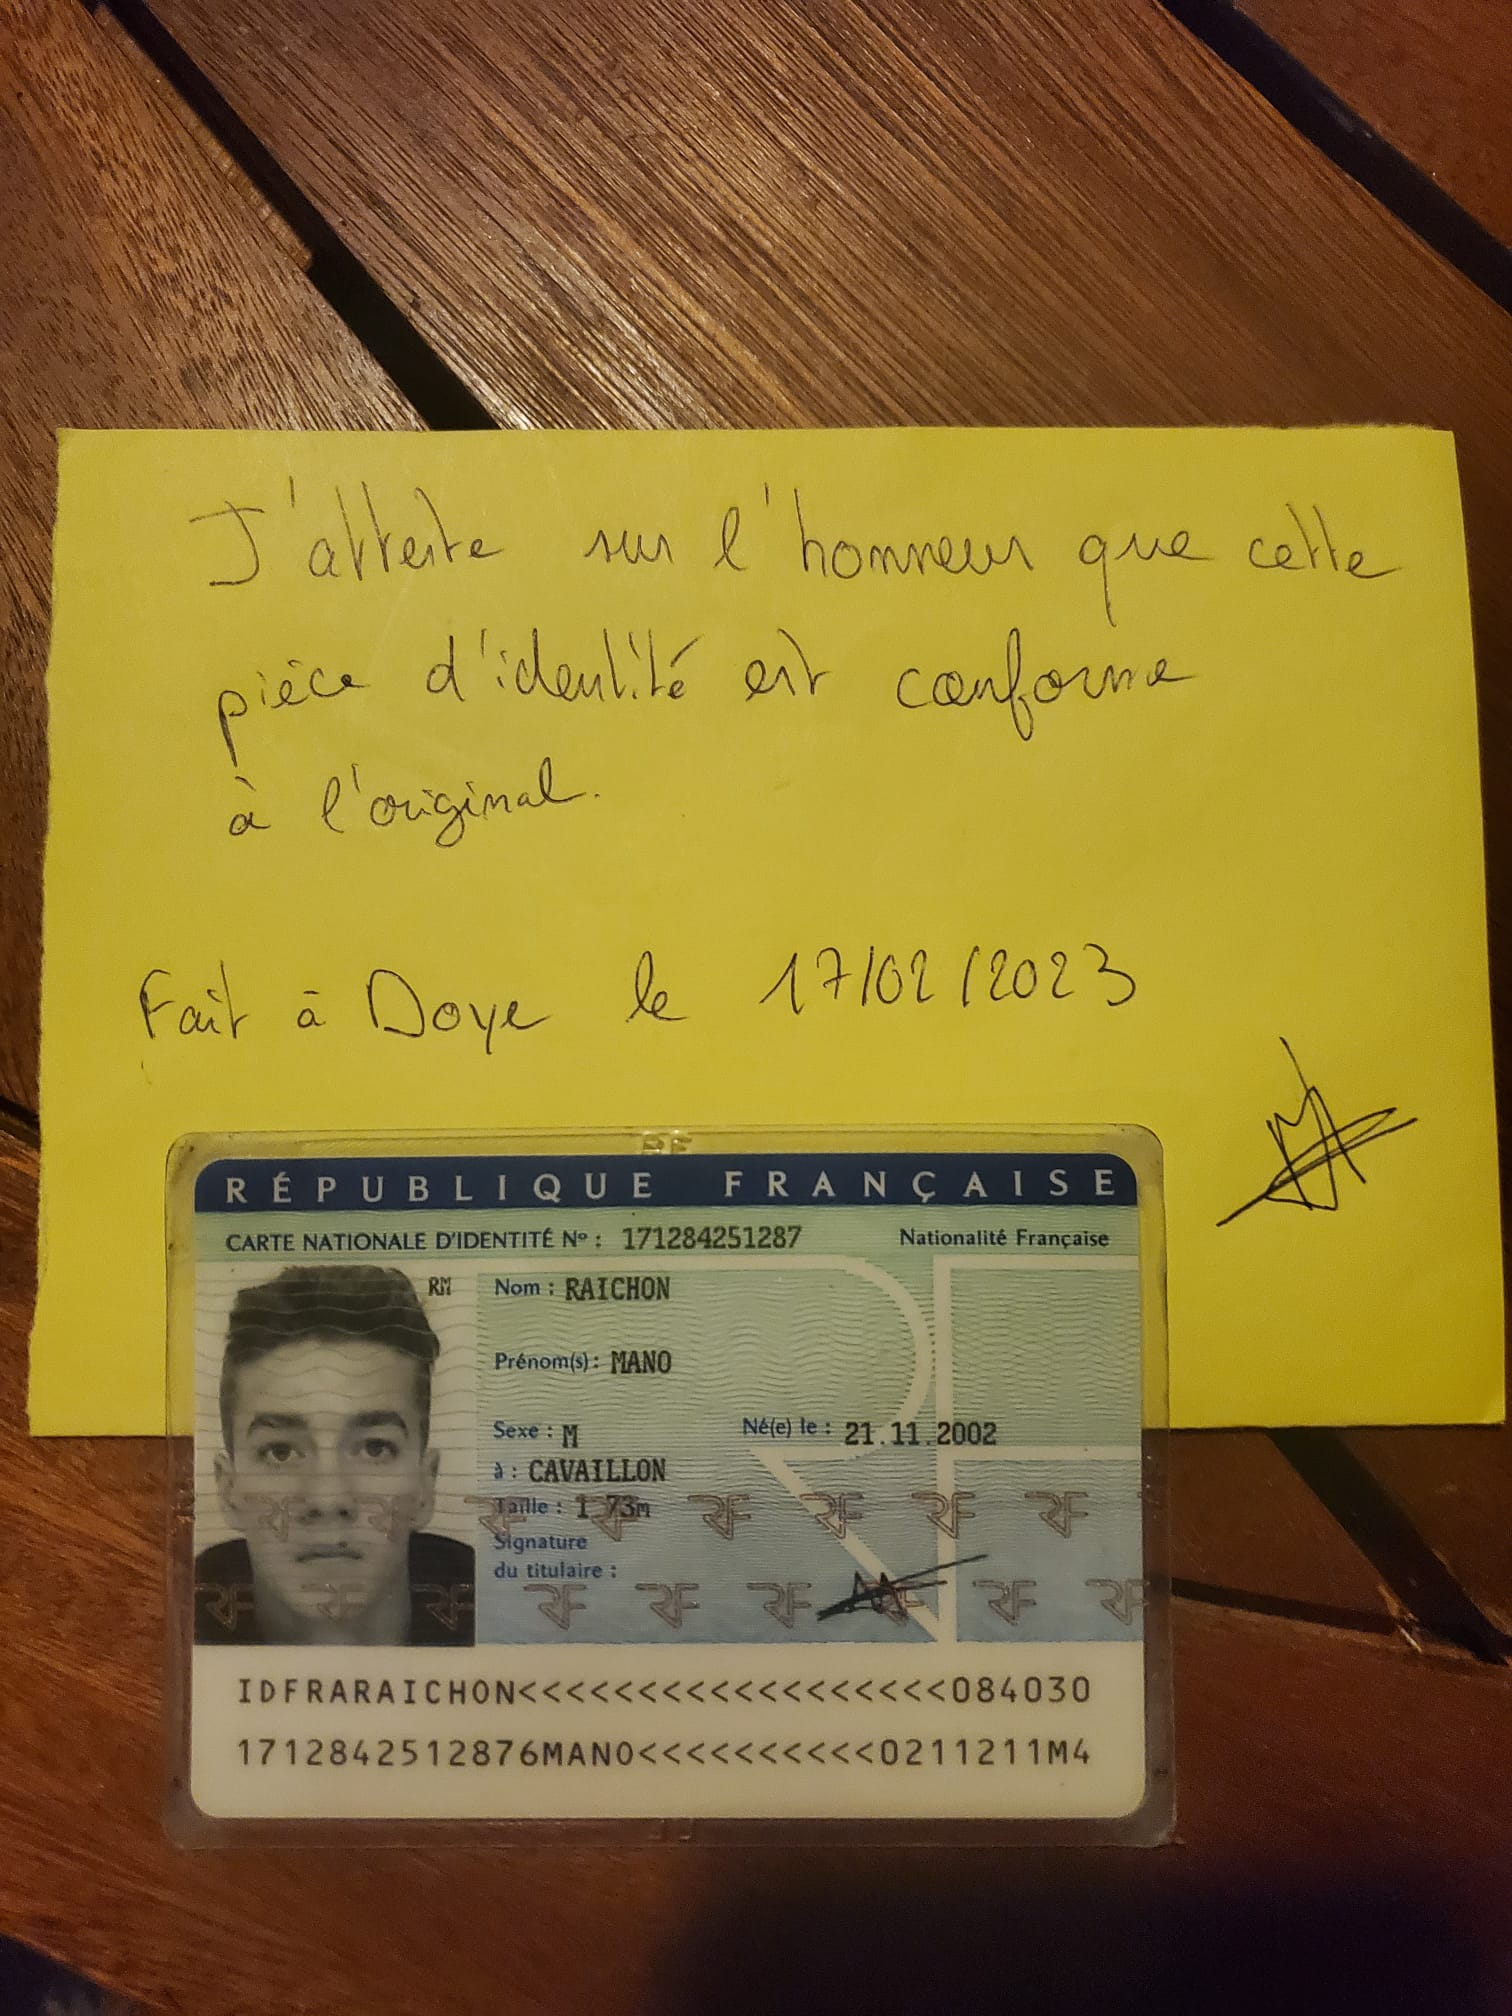 J'atteste sur l'honneur que cette
pièce d'identité est conforme
à l'original.
Fait à Doye le 17/02/2023
RÉPUBLIQUE FRANÇAISE
CARTE NATIONALE D'IDENTITÉ Nº : 171284251287 Nationalité Française
RM
Nom : RAICHON
Prénom(s) : MANO
Sexe : M Né(e) le : 21.11.2002
à : CAVAILLON
Taille : 1,73m
Signature
du titulaire :
IDFRARAICHON<<<<<<<<<<<<<<<<<<084030
1712842512876MANO<<<<<<<<<<0211211M4